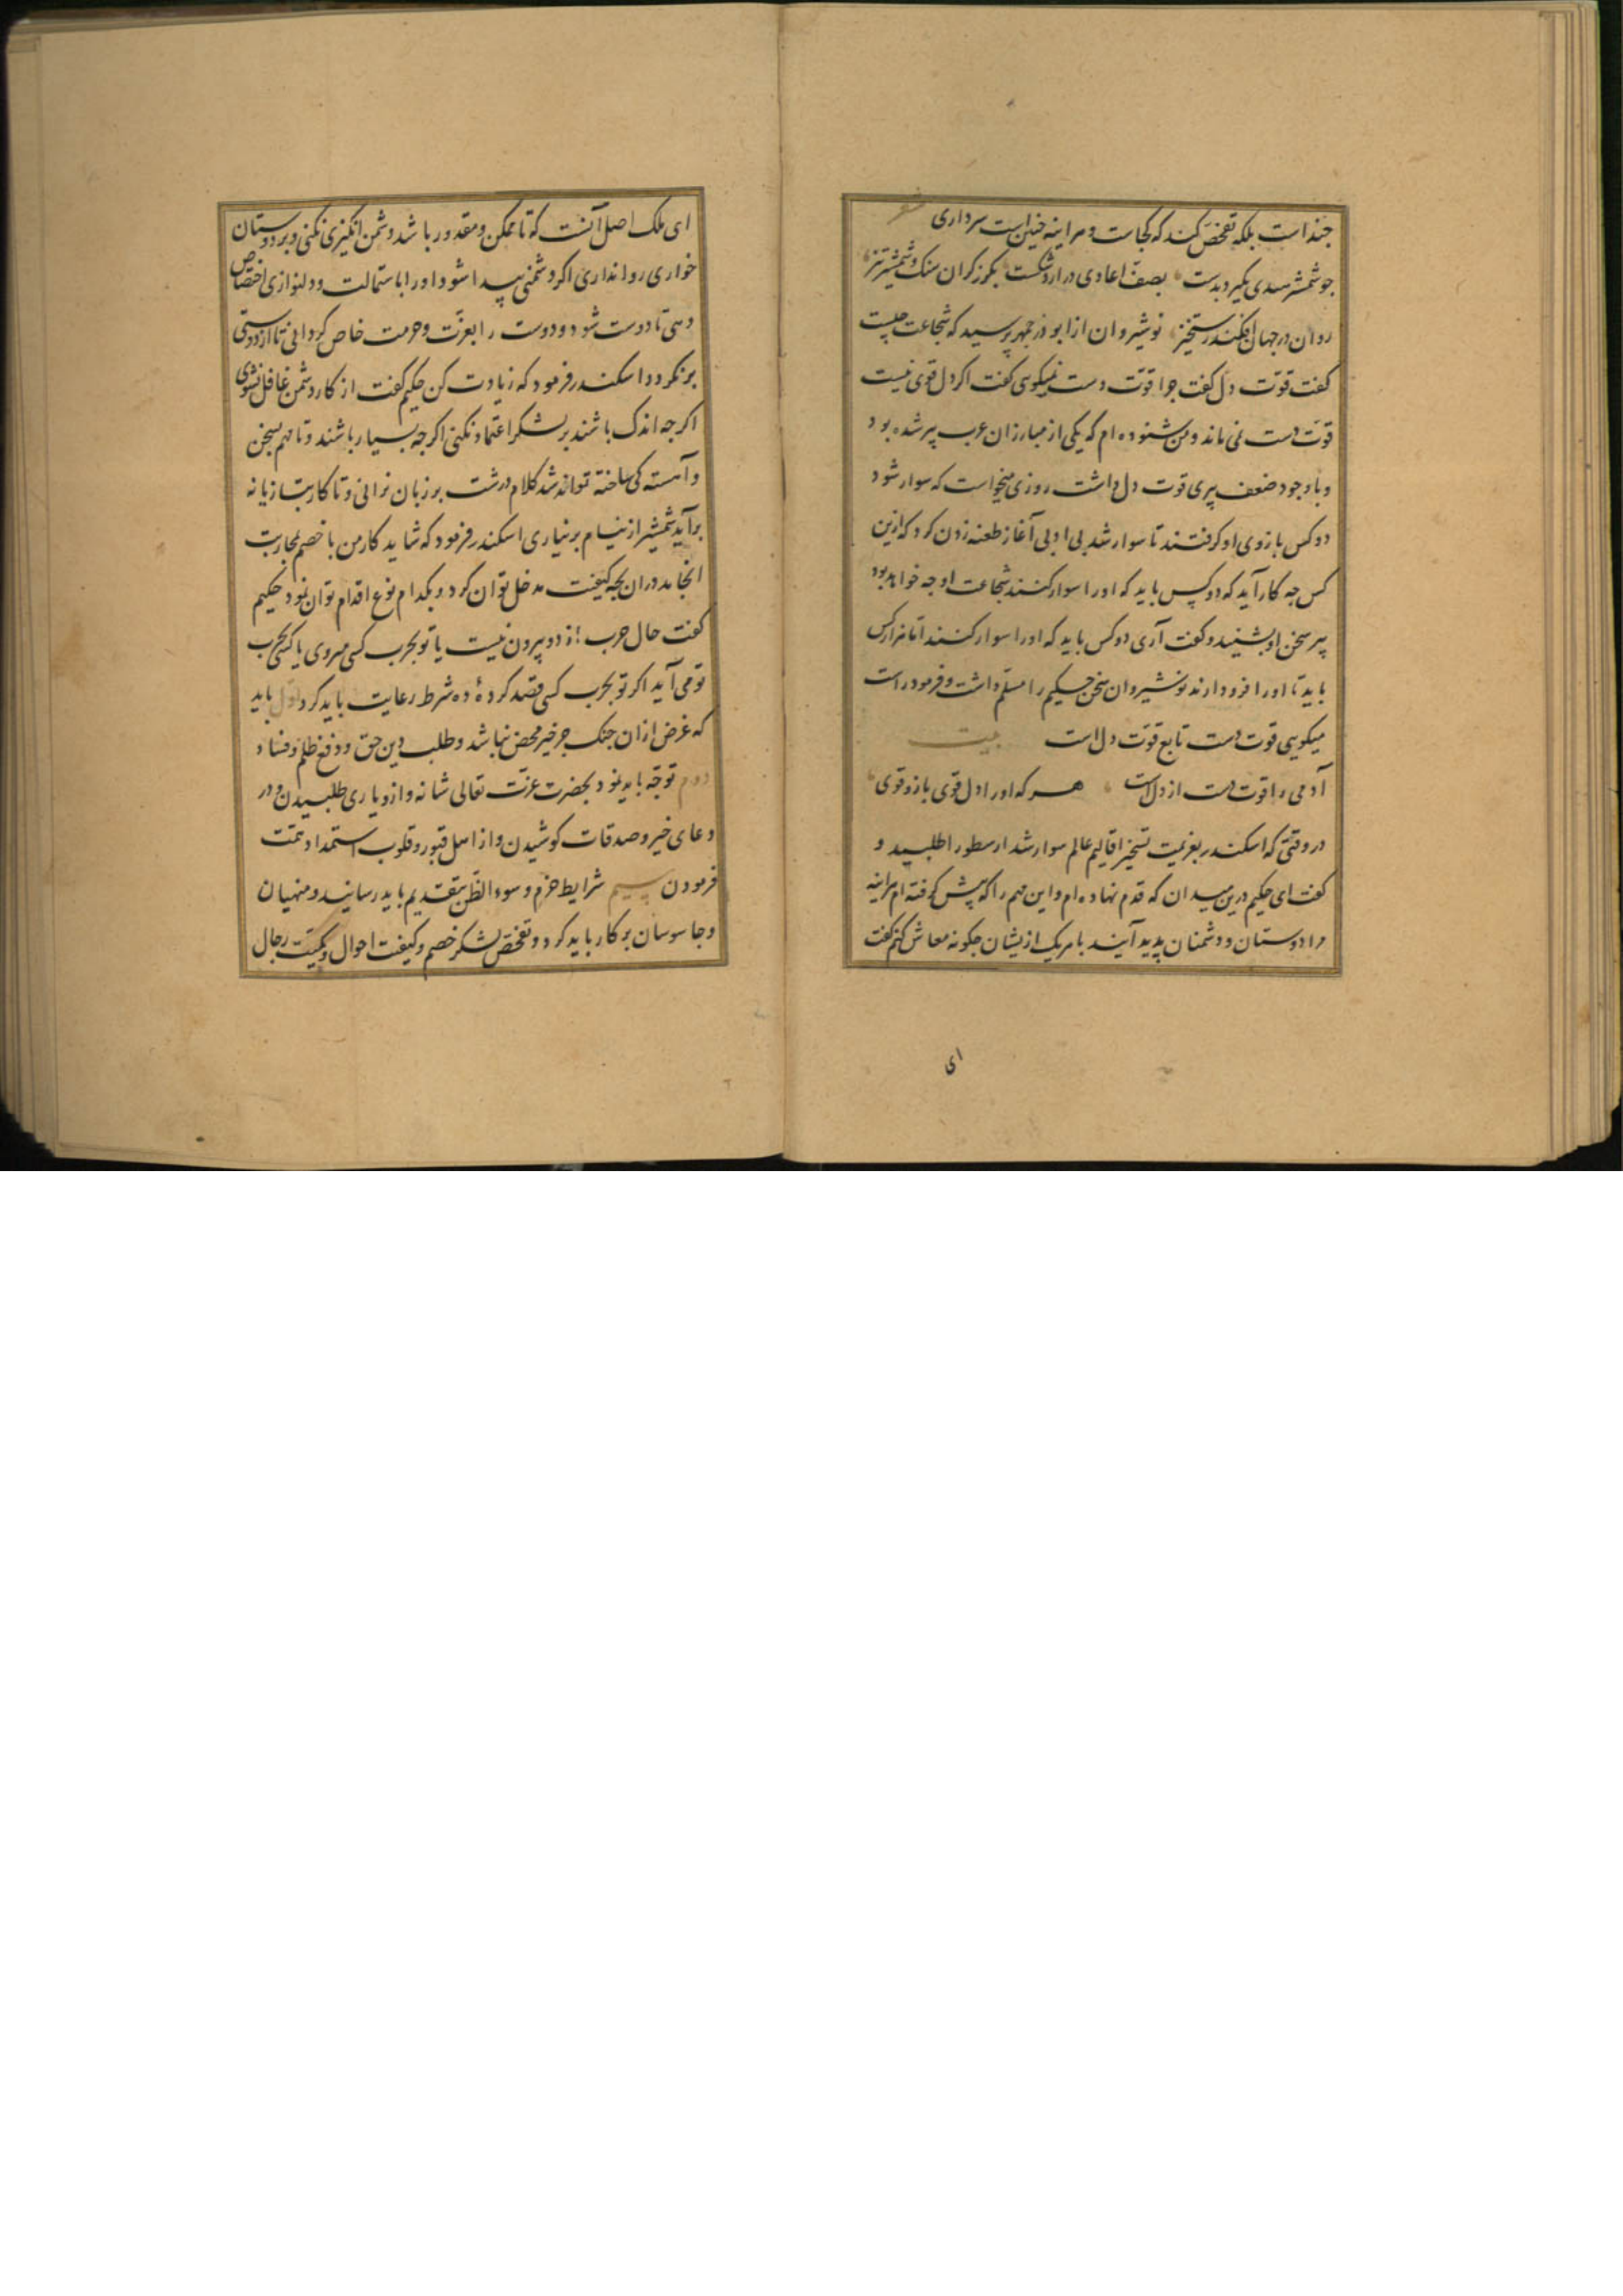 چنداست بلکه تفحص کند که کجاست و هراینه چنین است سرداری شعر
چو شمشیر هندی بگیرد بدست بصف اعادی دراردشکست بگرز گران سنک و شمشیر تیز
روان در جهان افکند رستخیز نوشیروان از ابوذرجمهر پرسید که شجاعت چیست
گفت قوت دل گفت چرا قوت دست نمیگویی گفت اگر دل قوی نیست
قوت دست نمی ماند و من شنوده ام که یکی از مبارزان عرب پیر شده بود
و باوجود ضعف پیری قوت دل داشت روزی میخواست که سوار شود
دو کس بازوی او گرفتند تا سوار شد بی ادبی آغاز طعنه زدن کرد که ازین
کس چه کار آید که دو کس باید که اورا سوار کنند شجاعت او چه خواهد بود
پیر سخن او بشنید و گفت آری دو کس باید که اورا سوار کنند اما هزار کس
باید تا اورا فرود آرند نوشیروان سخن حکیم را مسلم داشت و فرمود راست
میگویی قوت دست تابع قوت دل است بیت
آدمی را قوت دست از دل است هر که اورا دل قوی بازو قوی
در وقتی که اسکندر بعزیمت تسخیر اقالیم عالم سوار شد ارسطو را طلبید و
گفت ای حکیم درین میدان که قدم نهاده ام و این مهم را که پیش گرفته ام هراینه
مرا دوستان و دشمنان پدید آیند با هریک ازیشان چگونه معاش کنم گفت
ای
ای ملک اصل آنست که تا ممکن و مقدور باشد دشمن انگیزی نکنی و بر دوستان
خواری روا نداری اگر دشمنی پیدا شود اورا باستمالت و دلنوازی اختصاص
دهی تا دوست شود و دوست را بعزت و حرمت خاص گردانی تا از دوستی
برنگردد اسکندر فرمود که زیادت کن حکیم گفت از کار دشمن غافل نشوی
اگرچه اندک باشند بر لشکر اعتماد نکنی اگرچه بسیار باشند و تا مهم بسخن
و آهستگی ساخته تواند شد کلام درشت بر زبان نرانی و تا کار بتازیانه
برآید شمشیر از نیام برنیاری اسکندر فرمود که شاید کار من با خصم بمحاربت
انجامد دران بچه کیفیت مدخل توان کرد و بکدام نوع اقدام توان نمود حکیم
گفت حال حرب از دو بیرون نیست یا تو بحرب کسی میروی یا کسی بحرب
تو می آید اگر تو بحرب کسی قصد کرده ده شرط رعایت باید کرد اول باید
که غرض ازان جنک جز خیر محض نباشد و طلب دین حق و دفع ظلم و فساد
دوم توجه باید نمود بحضرت عزت تعالی شانه و ازو یاری طلبیدن و در
دعای خیر و صدقات کوشیدن و از اهل قبور و قلوب استمداد همت
فرمودن سیم شرایط حزم و سوء الظن بتقدیم باید رسانید و منهیان
و جاسوسان بر کار باید کرد و تفحص لشکر خصم و کیفیت احوال و کمیت رجال